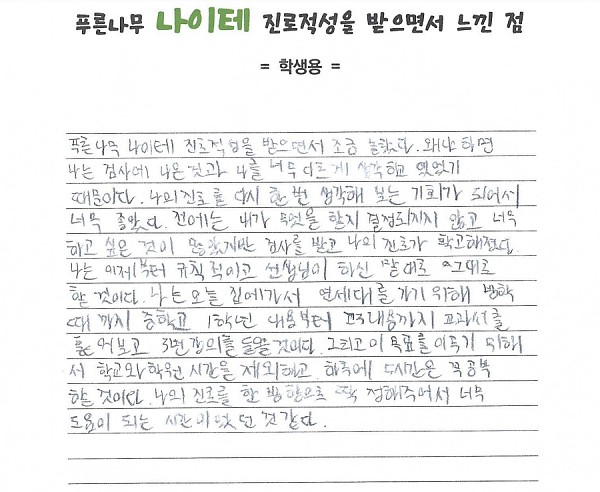 푸른나무 나이테 진로적성을 받으면서 느낀 점
= 학생용 =
푸른나무 나이테 진로적성을 받으면서 조금 놀랐다. 왜냐하면
나는 검사에 나온 것과 나를 너무 다르게 생각하고 있었기
때문이다. 나의 진로를 다시 한 번 생각해 보는 기회가 되어서
너무 좋았다. 전에는 내가 무엇을 할지 결정되지지 않고 너무
하고 싶은 것이 많았지만 검사를 받고 나의 진로가 확고해졌다.
나는 이제부터 규칙적이고 선생님이 하신 말대로 그대로
할 것이다. 나는 오늘 집에가서 연세대를 가기 위해 방학
때 까지 중학교 1학년 내용부터 고3내용까지 교과서를
훑어보고 3번 강의를 들을 것이다. 그리고 이 목표를 이루기 위해
서 학교와 학원 시간을 제외하고 하루에 5시간은 꼭 공부
할 것이다. 나의 진로를 한 방향으로 딱 정해주어서 너무
도움이 되는 시간이었던 것 같다.